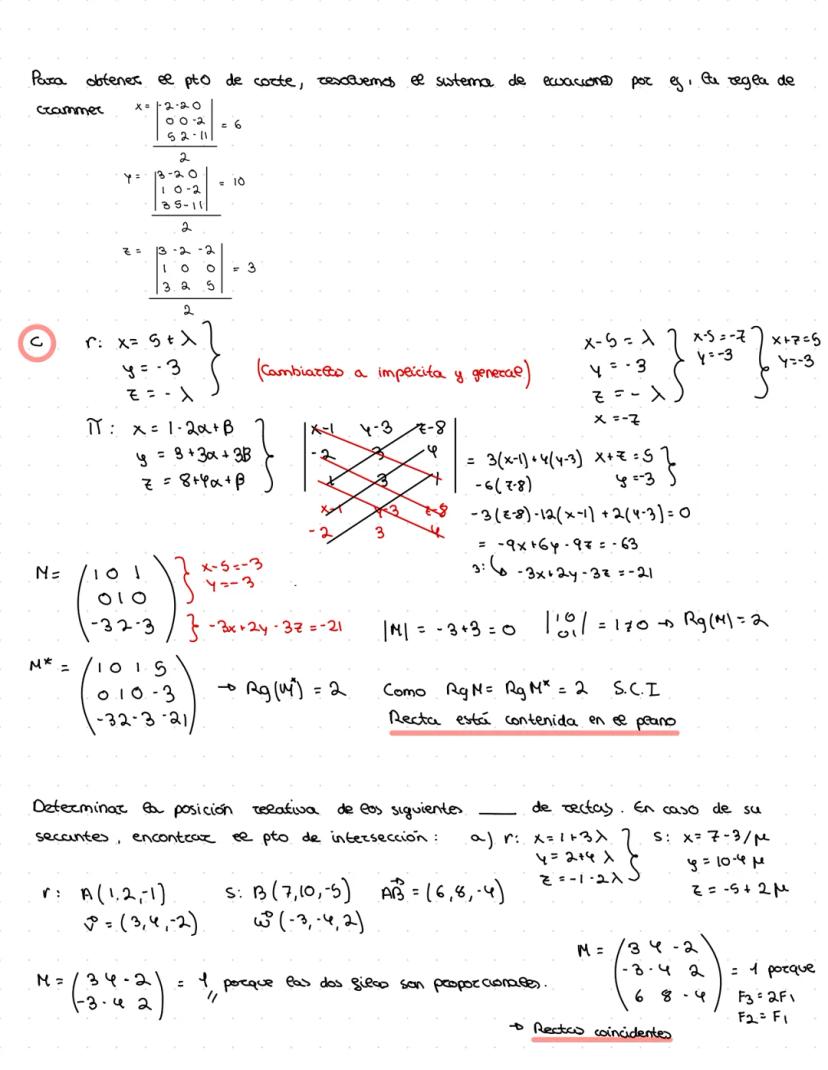 Para obtener el pto de corte, resolvemos el sistema de ecuaciones por ej, la regla de
crammer
x = |-2 -2 0
0 0 -2
5 2 -11| = 6
2
y = |3 -2 0
1 0 -2
3 5 -11| = 10
2
z = |3 -2 -2
1 0 0
3 2 5| = 3
2
C
r: x = 5 + λ
y = -3
z = -λ
(Cambiarlo a implícita y general)
x - 5 = λ
y = -3
z = -λ
x = -z
x - 5 = -z
y = -3
x + z = 5
y = -3
π: x = 1 - 2α + β
y = 3 + 3α + 3β
z = 8 + 4α + β
x-1 y-3 z-8
-2 3 4
1 3 1
x-1 y-3 z-8
-2 3 4
= 3(x-1) + 4(y-3)
-6(z-8)
x + z = 5
y = -3
-3(z-8) - 12(x-1) + 2(y-3) = 0
= -9x + 6y - 9z = -63
3: ↳ -3x + 2y - 3z = -21
M = (1 0 1
0 1 0
-3 2 -3)
x - 5 = -3
y = -3
-3x + 2y - 3z = -21
|M| = -3 + 3 = 0 |1 0
0 1| = 1 ≠ 0 → Rg(M) = 2
M* = (1 0 1 5
0 1 0 -3
-3 2 -3 -21)
→ Rg(M*) = 2 Como Rg M = Rg M* = 2 S.C.I
Recta está contenida en el plano
Determinar la posición relativa de los siguientes ___ de rectas. En caso de su
secantes, encontrar el pto de intersección: a) r: x = 1 + 3λ
y = 2 + 4λ
z = -1 - 2λ
s: x = 7 - 3/μ
y = 10 - 4μ
z = -5 + 2μ
r: A(1,2,-1) s: B(7,10,-5) AB = (6,8,-4)
v = (3,4,-2) w(-3,-4,2)
M = (3 4 -2
-3 -4 2) = 1, porque las dos filas son proporcionales.
M = (3 4 -2
-3 -4 2
6 8 -4) = 1 porque
F3 = 2F1
F2 = F1
→ Rectas coincidentes